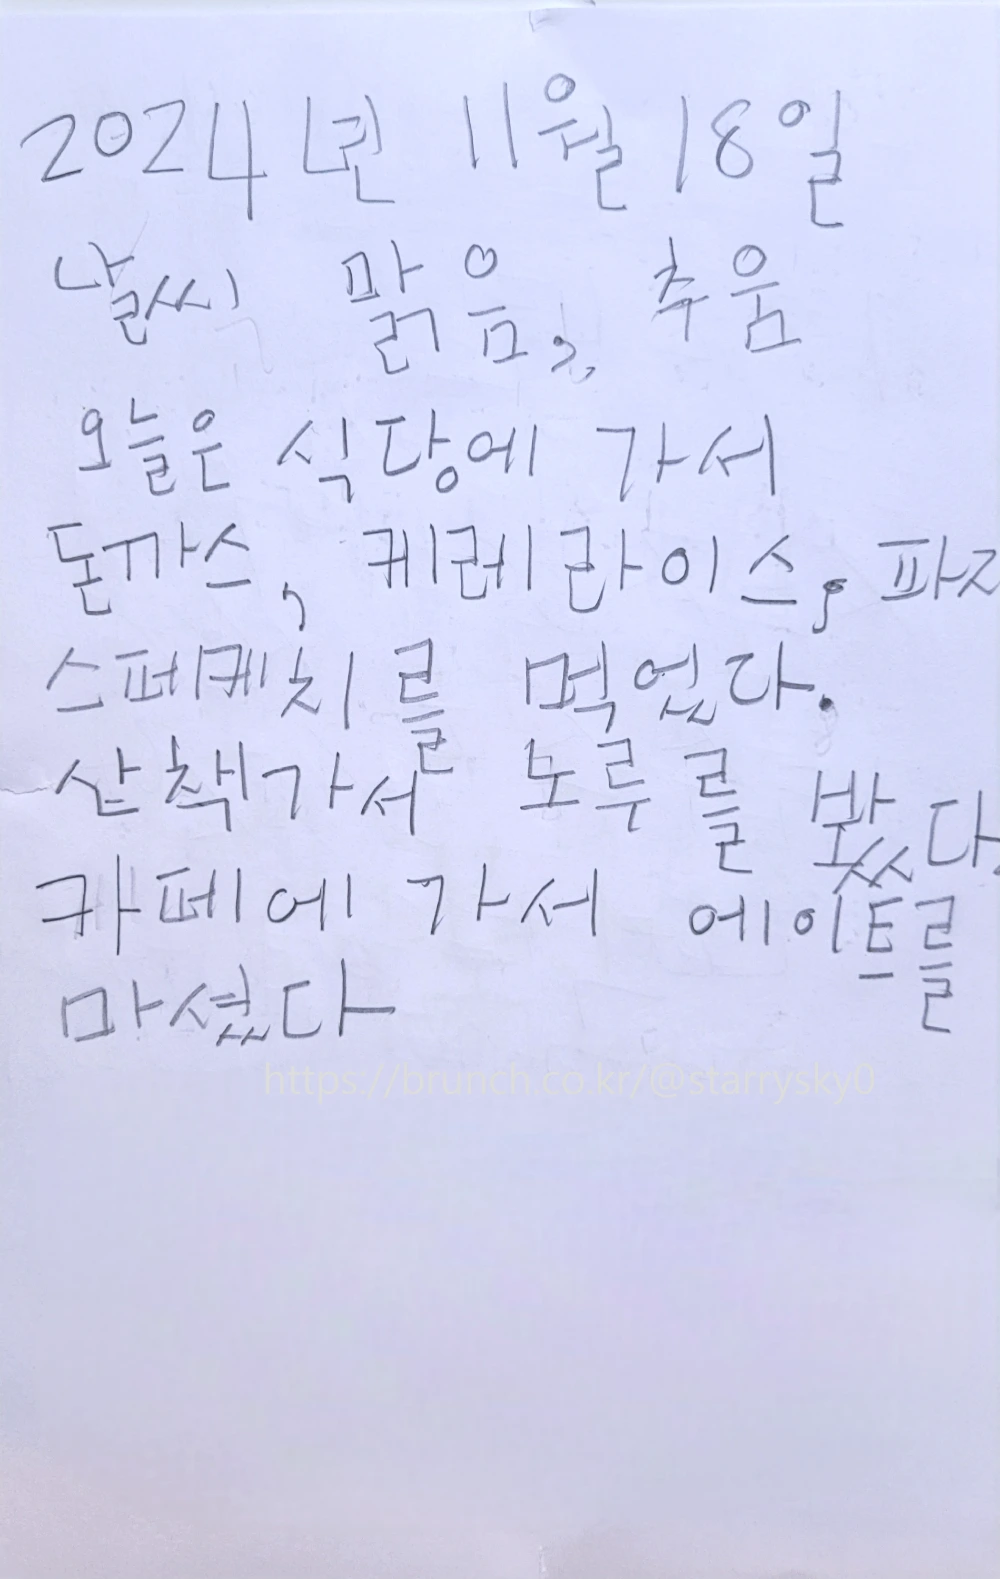 2024년 11월 18일
날씨 맑음, 추움
오늘은 식당에 가서
돈까스, 케레라이스, 파자
스페케치를 먹었다.
산책가서 노루를 봤다.
카페에 가서 에이트를
마셨다
https://brunch.co.kr/@starrysky0